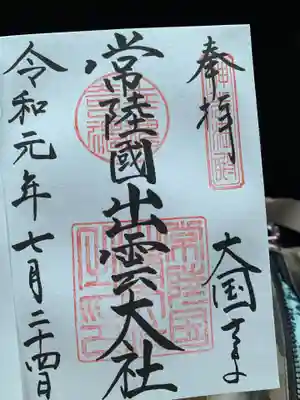 奉拝
大国さま
常陸國出雲大社
令和元年七月二十四日